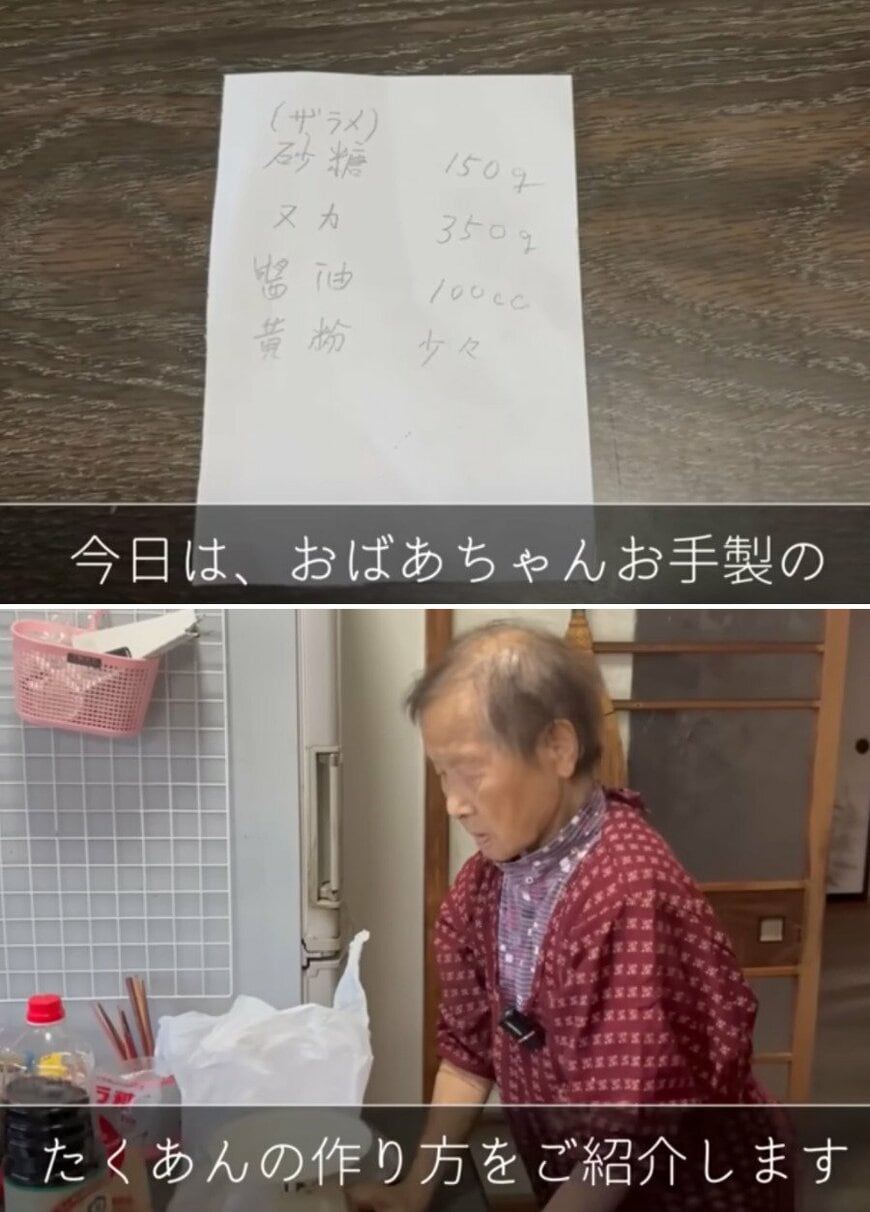 (ザラメ)
砂糖 150g
ヌカ 350g
醤油 100cc
黄粉 少々
今日は、おばあちゃんお手製の
たくあんの作り方をご紹介します